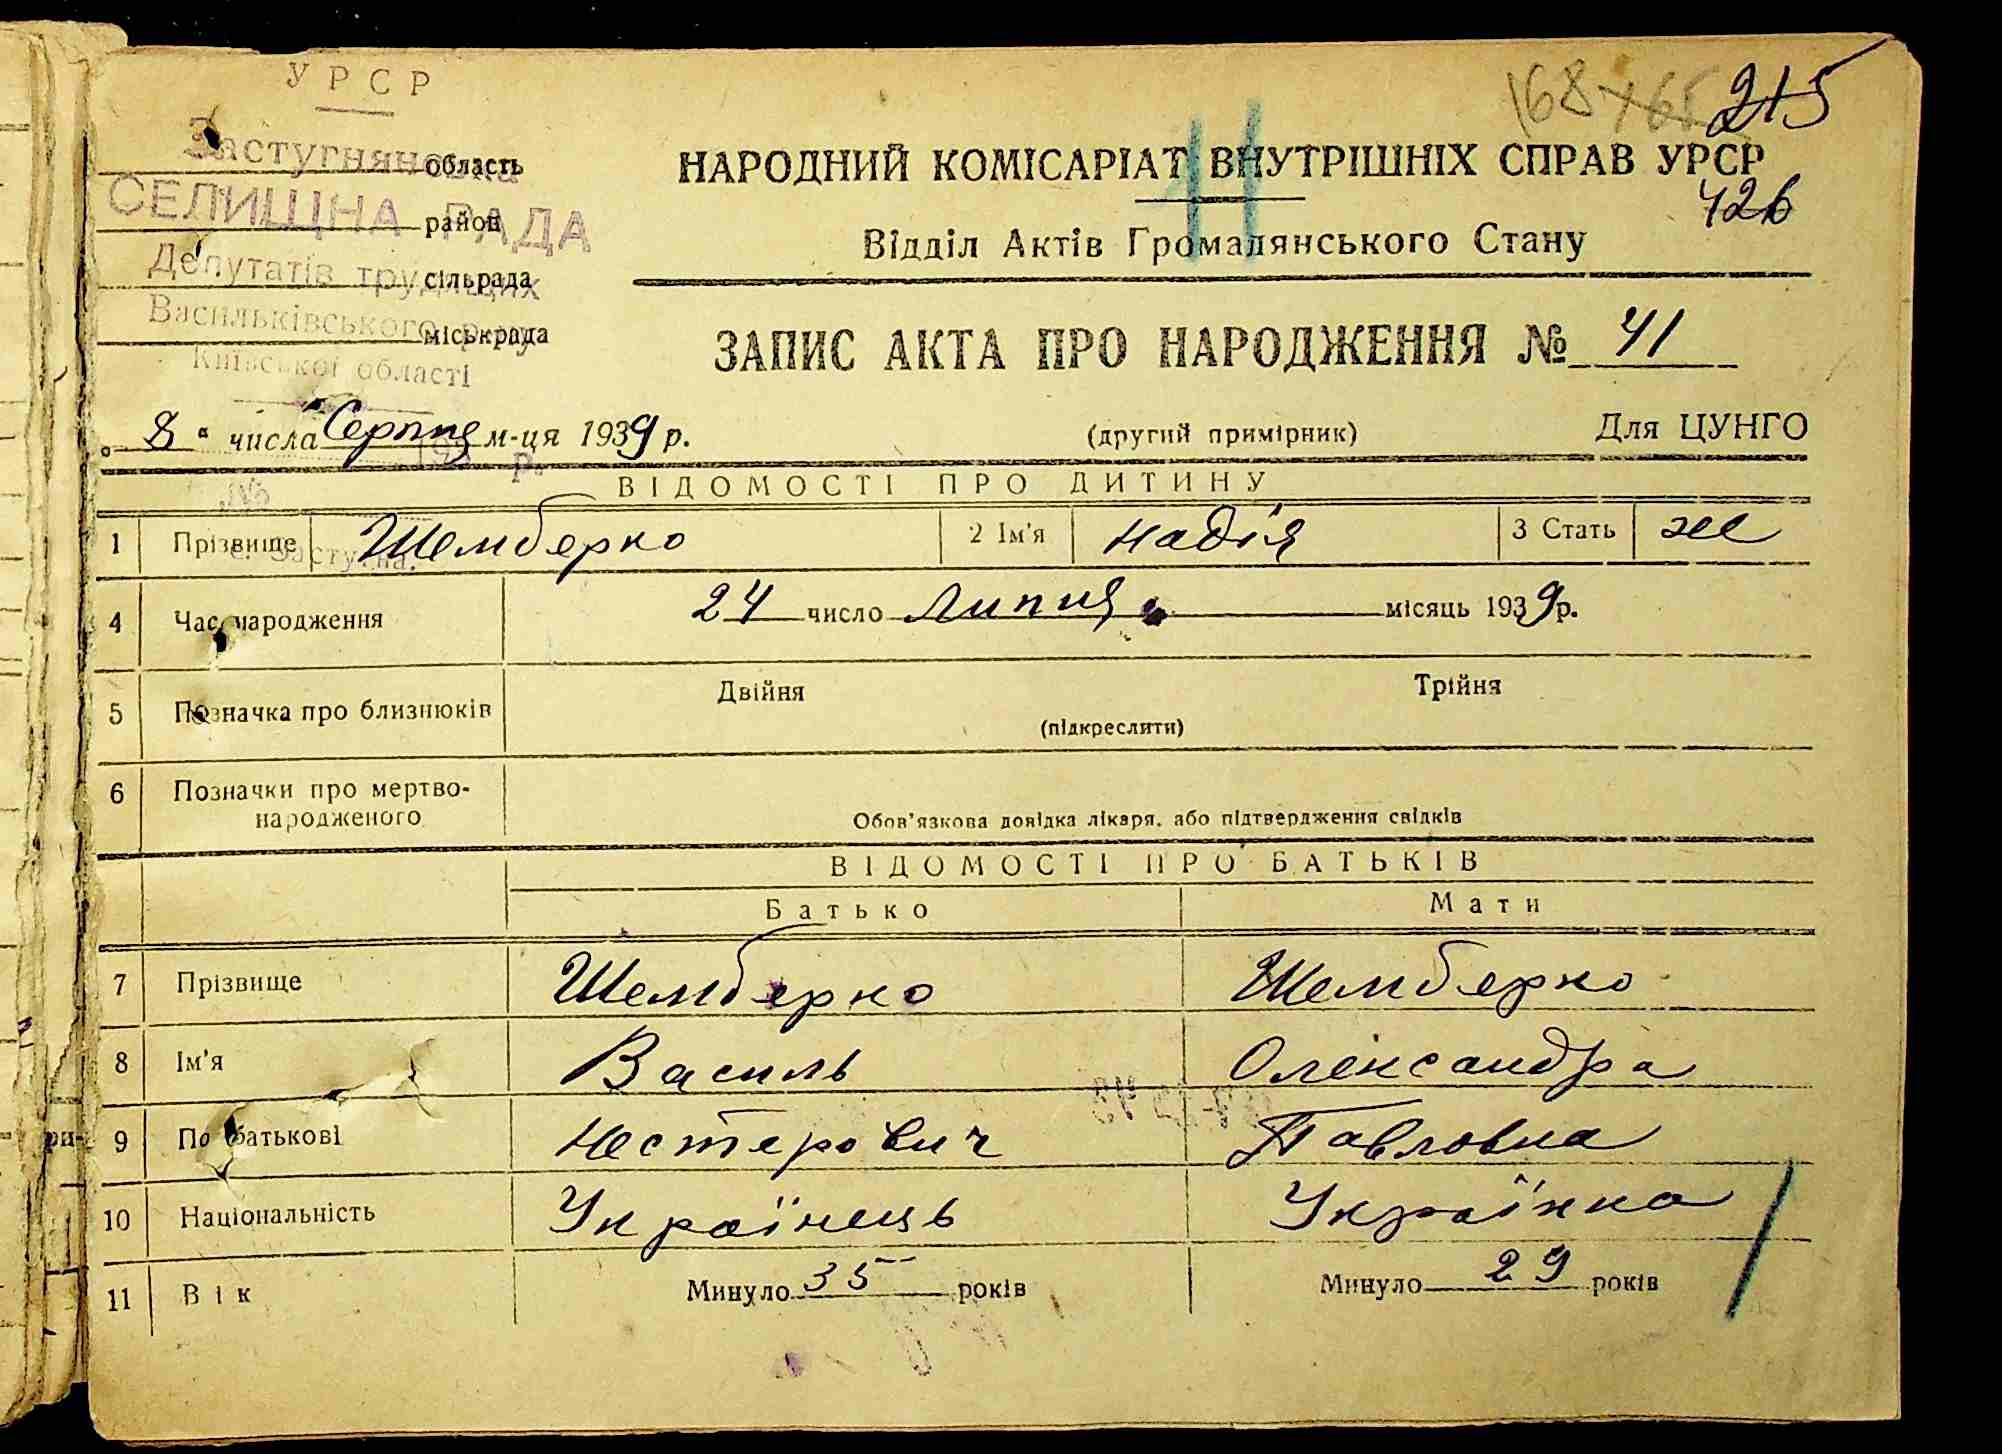 УРСР
168 215
Застугнянська область
НАРОДНИЙ КОМІСАРІАТ ВНУТРІШНІХ СПРАВ УРСР
СЕЛИЩНА РАДА район
426
Відділ Актів Громадянського Стану
Депутатів трудящих сільрада
Васильківського р-ну міськрада
ЗАПИС АКТА ПРО НАРОДЖЕННЯ № 41
Київської області
„ 8 “ числа Серпня м-ця 1939 р. (другий примірник) Для ЦУНГО
193 р.
№
ВІДОМОСТІ ПРО ДИТИНУ
1 Прізвище Шемберко 2 Ім'я Надія 3 Стать Же
4 Час народження 24 число Липня місяць 1939 р.
5 Позначка про близнюків Двійня Трійня
(підкреслити)
6 Позначки про мертво-
народженого
Обов'язкова довідка лікаря, або підтвердження свідків
ВІДОМОСТІ ПРО БАТЬКІВ
Батько Мати
7 Прізвище Шемберко Шемберко
8 Ім'я Василь Олександра
9 По батькові Нестерович Павловна
10 Національність Українець Українка
11 Вік Минуло 35 років Минуло 29 років